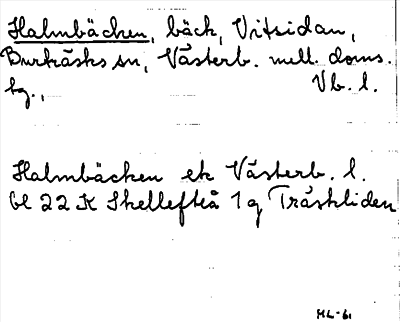 Halmbäcken, bäck, Vitsidan,
Burträsks sn, Västerb. mell. doms.
hg., Vb. l.
Halmbäcken ek Västerb. l.
bl 22 K Skellefteå 1 g Träskliden
HL-61